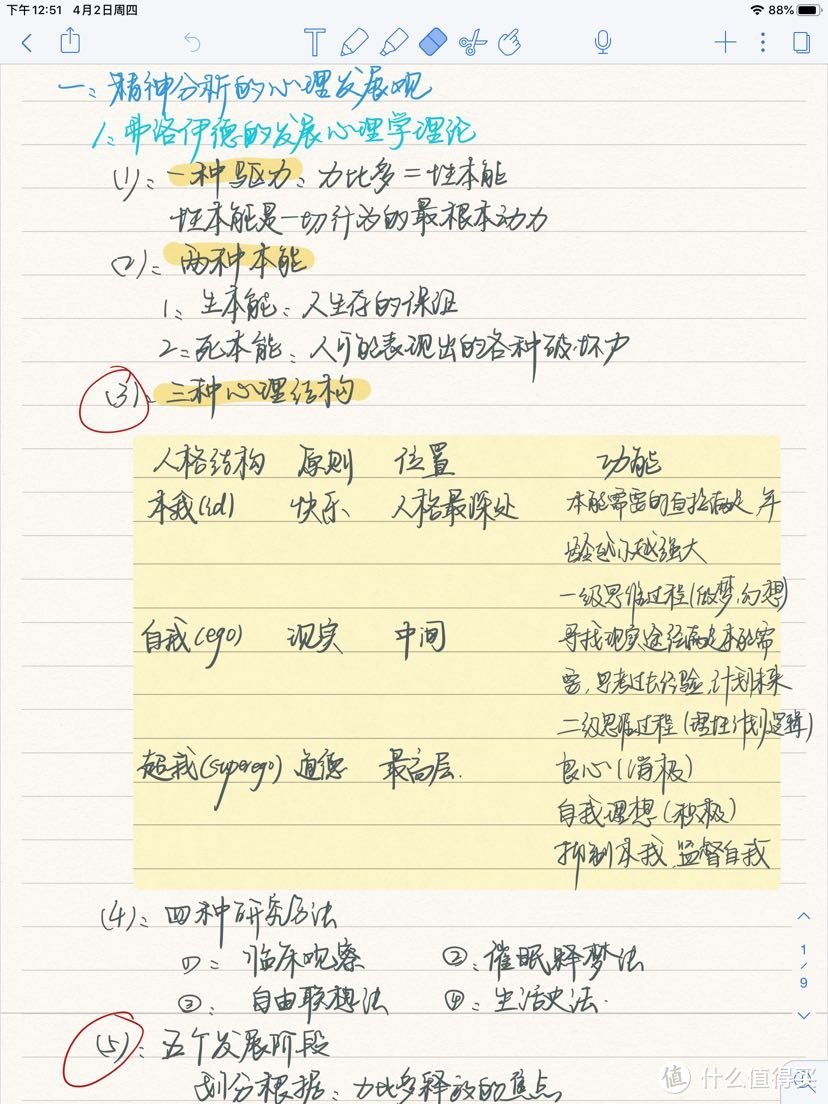 下午12:51 4月2日周四
88%
一、精神分析的心理发展观
1、弗洛伊德的发展心理学理论
(1)、一种驱力、力比多=性本能
性本能是一切行为的最根本动力
(2)、两种本能
1、生本能、人生存的保证
2、死本能、人可能表现出的各种破坏力
(3)、三种心理结构
人格结构 原则 位置 功能
本我(id) 快乐 人格最深处 本能需要的直接满足,年
龄越小越强大
一级思维过程(做梦,幻想)
自我(ego) 现实 中间 寻找现实途径满足本能需
要,思考过去经验,计划未来
二级思维过程(理性计划逻辑)
超我(superego) 道德 最高层. 良心(消极)
自我理想(积极)
抑制本我,监督自我
(4)、四种研究方法
①、临床观察 ②、催眠释梦法
③、自由联想法 ④、生活史法.
(5)、五个发展阶段
划分根据、力比多释放的焦点
1/9
值 什么值得买